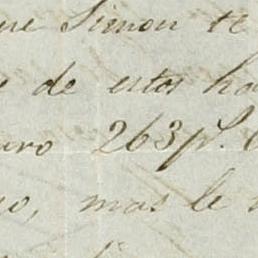 ue Simon te
de estos ha
uro 263 p.s
o, mas le